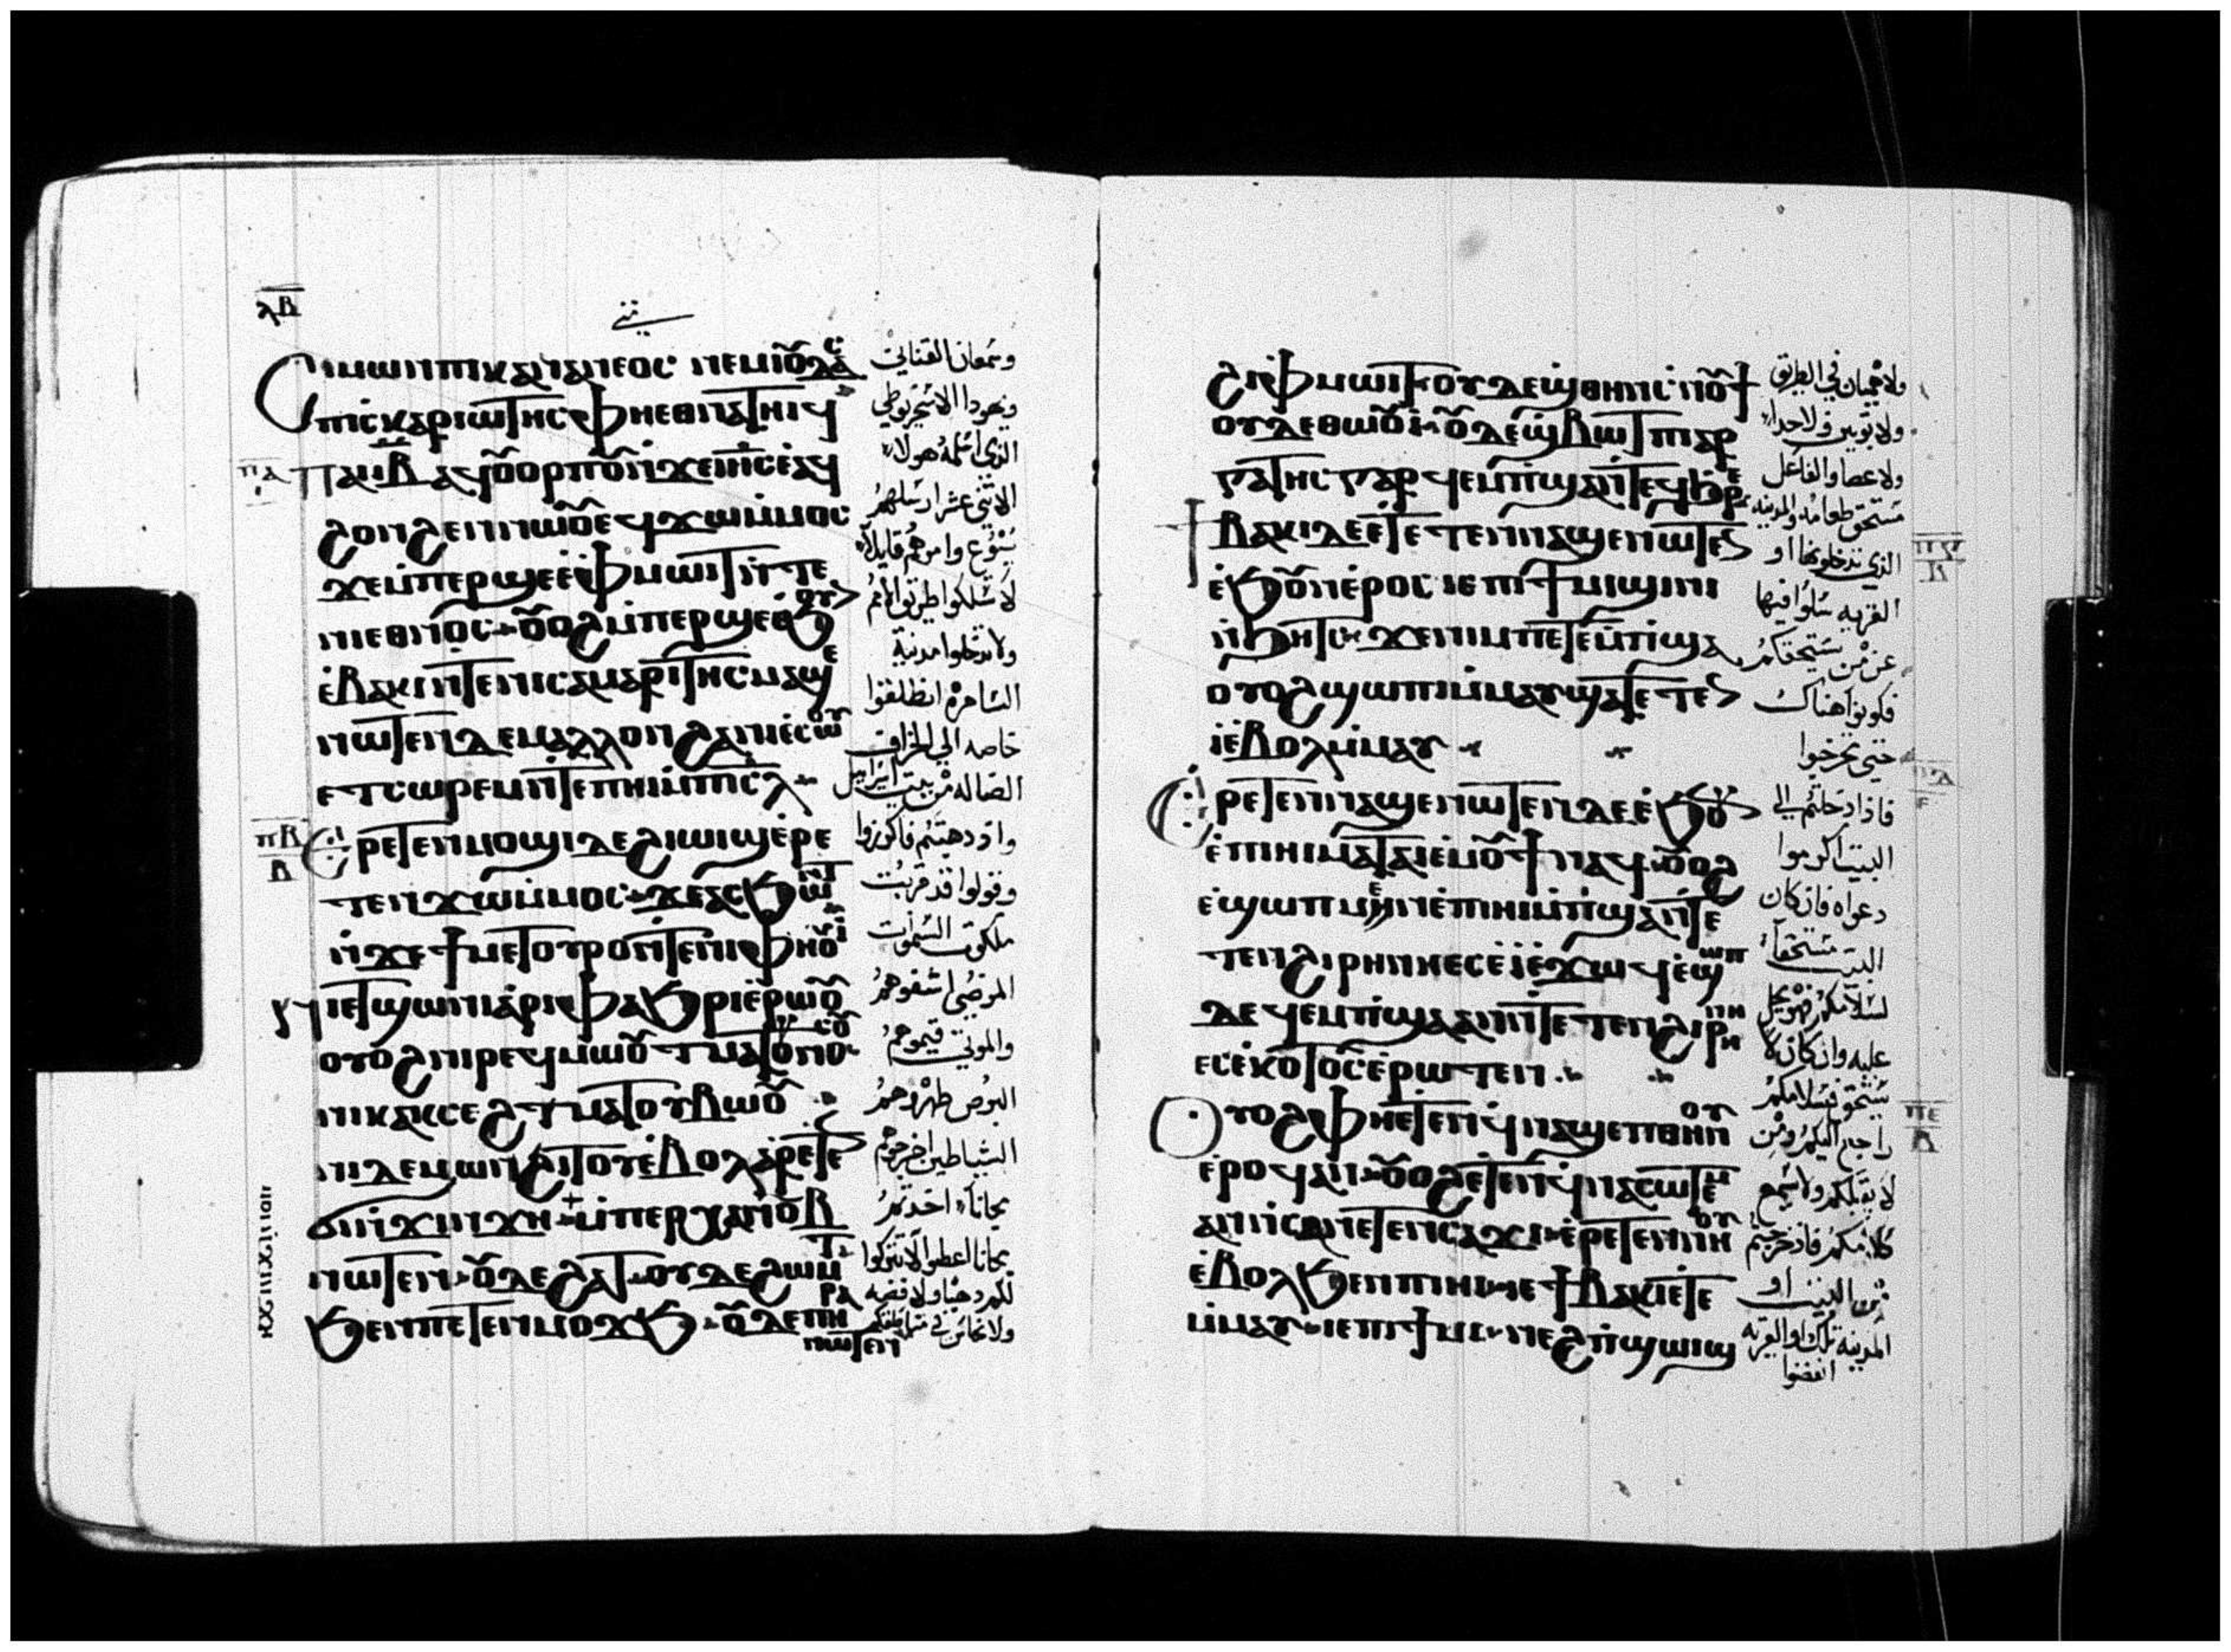 ⲗⲃ
ⲥⲓⲙⲱⲛ ⲡⲓⲕⲁⲛⲁⲛⲉⲟⲥ ⲛⲉⲙ ⲓⲟⲩⲇⲁⲥ
ⲡⲓⲥⲕⲁⲣⲓⲱⲧⲏⲥ ⲫⲏⲉⲑⲛⲁⲧⲏⲓϥ
ⲡⲁⲓⲓⲃ ⲁϥⲟⲩⲟⲣⲡⲟⲩ ⲛϫⲉ ⲓⲏⲥ ⲉⲁϥ
ϩⲟⲛϩⲉⲛ ⲛⲱⲟⲩ ⲉϥϫⲱ ⲙⲙⲟⲥ
ϫⲉ ⲙⲡⲉⲣϣⲉ ⲉⲫⲙⲱⲓⲧ ⲛⲧⲉ
ⲛⲓⲉⲑⲛⲟⲥ ⲟⲩⲟϩ ⲙⲡⲉⲣϣⲉ ⲉϧⲟⲩⲛ
ⲉⲃⲁⲕⲓ ⲛⲧⲉ ⲛⲓⲥⲁⲙⲁⲣⲓⲧⲏⲥ ⲙⲁϣⲉ
ⲛⲱⲧⲉⲛ ⲇⲉ ⲙⲁⲗⲗⲟⲛ ϩⲁ ⲛⲓⲉⲥⲱⲟⲩ
ⲉⲧⲥⲱⲣⲉⲙ ⲛⲧⲉ ⲡⲏⲓ ⲙⲡⲓⲥⲗ
ⲉⲣⲉⲧⲉⲛⲙⲟϣⲓ ⲇⲉ ϩⲓⲱⲓϣ ⲉⲣⲉ
ⲧⲉⲛϫⲱ ⲙⲙⲟⲥ ϫⲉ ⲁⲥϧⲱⲛⲧ
ⲛϫⲉ ϯⲙⲉⲧⲟⲩⲣⲟ ⲛⲧⲉ ⲛⲓⲫⲏⲟⲩⲓ
ⲛⲏⲉⲧϣⲱⲛⲓ ⲁⲣⲓⲫⲁϧⲣⲓ ⲉⲣⲱⲟⲩ
ⲟⲩⲟϩ ⲛⲓⲣⲉϥⲙⲱⲟⲩⲧ ⲙⲁⲧⲟⲩⲛⲟⲥⲟⲩ
ⲛⲓⲕⲁⲕⲥⲉϩⲧ ⲙⲁⲧⲟⲩⲃⲱⲟⲩ
ⲛⲓⲇⲉⲙⲱⲛ ϩⲓⲧⲟⲩ ⲉⲃⲟⲗ ⲁⲣⲉⲧⲉ
ⲛϭⲓ ⲛϫⲓⲛϫⲏ ⲙⲏⲓ ⲛϫⲓⲛϫⲏ ⲙⲡⲉⲣⲭⲁ ⲛⲟⲩⲃ
ⲛⲱⲧⲉⲛ ⲟⲩⲇⲉ ϩⲁⲧ ⲟⲩⲇⲉ ϩⲟⲙⲧ
ϧⲉⲛ ⲛⲉⲧⲉⲛⲙⲟϫϧ ⲟⲩⲇⲉ ⲡⲏⲣⲁ
ⲛⲱⲧⲉⲛ
وسمعان القناني
ويهودا الاسخريوطي
الذى اسلمه هولا
الاثنى عشر ارسلهم
يسوع وامرهم قايلا
لا تسلكوا طريق الامم
ولا تدخلوا مدينة
السامره انطلقوا
خاصه الى الخراف
الضاله من بيت اسراييل
واذ ذهبتم فاكرزوا
وقولوا قد قربت
ملكوت السموات
المرضى اشفوهم
والموتى قيموهم
البرص طهروهم
الشياطين اخرجوهم
مجانا اخذتم
مجانا اعطوا لا تتركوا
لكم ذهبا ولا فضه
ϩⲓ ⲫⲙⲱⲓⲧ ⲟⲩⲇⲉ ϣⲑⲏⲛ ⲥⲛⲟⲩϯ
ⲟⲩⲇⲉ ⲑⲱⲟⲩⲓ ⲟⲩⲇⲉ ϣⲃⲱⲧ ⲡⲓⲉⲣ
ⲅⲁⲧⲏⲥ ⲅⲁⲣ ϥⲉⲙⲡϣⲁ ⲛⲧⲉϥϧⲣⲉ
ϯⲃⲁⲕⲓ ⲇⲉ ⲉⲧⲉⲧⲉⲛⲛⲁϣⲉ ⲛⲱⲧⲉⲛ
ⲉϧⲟⲩⲛ ⲉⲣⲟⲥ ⲓⲉ ⲡⲓϯⲙⲓ ϣⲓⲛⲓ
ⲛϧⲏⲧⲥ ϫⲉ ⲛⲓⲙ ⲡⲉⲧⲉⲙⲡϣⲁ
ⲟⲩⲟϩ ϣⲱⲡⲓ ⲙⲙⲁⲩ ϣⲁⲧⲉⲧⲉⲛ
ⲓ ⲉⲃⲟⲗ ⲙⲙⲁⲩ
ⲉⲣⲉⲧⲉⲛⲛⲁϣⲉ ⲛⲱⲧⲉⲛ ⲇⲉ ⲉϧⲟⲩⲛ
ⲉⲡⲓⲏⲓ ⲙⲁⲧⲁⲓⲉ ⲙⲟⲩϯ ⲛⲁϥ ⲟⲩⲟϩ
ⲉϣⲱⲡ ⲙⲉⲛ ⲡⲉ ⲡⲓⲏⲓ ⲙⲡϣⲁ ⲛⲧⲉ
ⲧⲉⲛϩⲓⲣⲏⲛⲏ ⲉⲥⲉⲓ ⲉϫⲱϥ ⲉϣⲱⲡ
ⲇⲉ ϥⲉⲙⲡϣⲁ ⲁⲛ ⲧⲉⲧⲉⲛϩⲓⲣⲏⲛⲏ
ⲉⲥⲉⲕⲟⲧⲥ ⲉⲣⲱⲧⲉⲛ
ⲟⲩⲟϩ ⲫⲏⲉⲧⲉⲛϥⲛⲁϣⲉⲡ ⲑⲏⲛⲟⲩ
ⲉⲣⲟϥ ⲁⲛ ⲟⲩⲟϩ ⲉⲧⲉⲛϥⲛⲁⲥⲱⲧⲉⲙ
ⲁⲛ ⲛⲥⲁ ⲛⲉⲧⲉⲛⲥⲁϫⲓ ⲉⲣⲉⲧⲉⲛⲛⲏⲟⲩ
ⲉⲃⲟⲗ ϧⲉⲛ ⲡⲓⲏⲓ ⲓⲉ ϯⲃⲁⲕⲓ ⲉⲧⲉ
ⲙⲙⲁⲩ ⲓⲉ ⲡⲓϯⲙⲓ ⲛⲉϩ ⲡϣⲱⲓϣ
ولا هميان فى الطريق
ولا ثوبين ولا حذا
ولا عصا والفاعل
مستحق طعامه والمدينه
الذى تدخلونها او
القريه سلوا فيها
عن من يستحقكم
فكونوا هناك
حتى تخرجوا
فاذا دخلتم الى
البيت اكرموا
دعواه فان كان
البيت مستحقا
عليه وان كان لا
يستحق فسلامكم
راجع اليكم ومن
لا يقبلكم ولا يسمع
كلامكم فاذ خرجتم
من البيت او
المدينه تلك او القريه
انفضوا